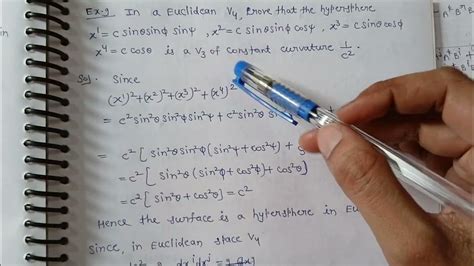 Ex-9 In a Euclidean V₄, prove that the hypersphere
x¹ = c sinθ sinφ sinψ, x² = c sinθ sinφ cosψ, x³ = c sinθ cosφ
x⁴ = c cosθ is a V₃ of constant curvature 1/c².
Sol. Since
(x¹)²+(x²)²+(x³)²+(x⁴)²
= c² sin²θ sin²φ sin²ψ + c² sin²θ sin
= c² [ sin²θ sin²φ (sin²ψ + cos²ψ) +
= c² [ sin²θ (sin²φ + cos²φ) + cos²θ ]
= c² [ sin²θ + cos²θ ] = c²
Hence the surface is a hypersphere in Eu
since, in Euclidean space V₄
dxⁱdxʲ